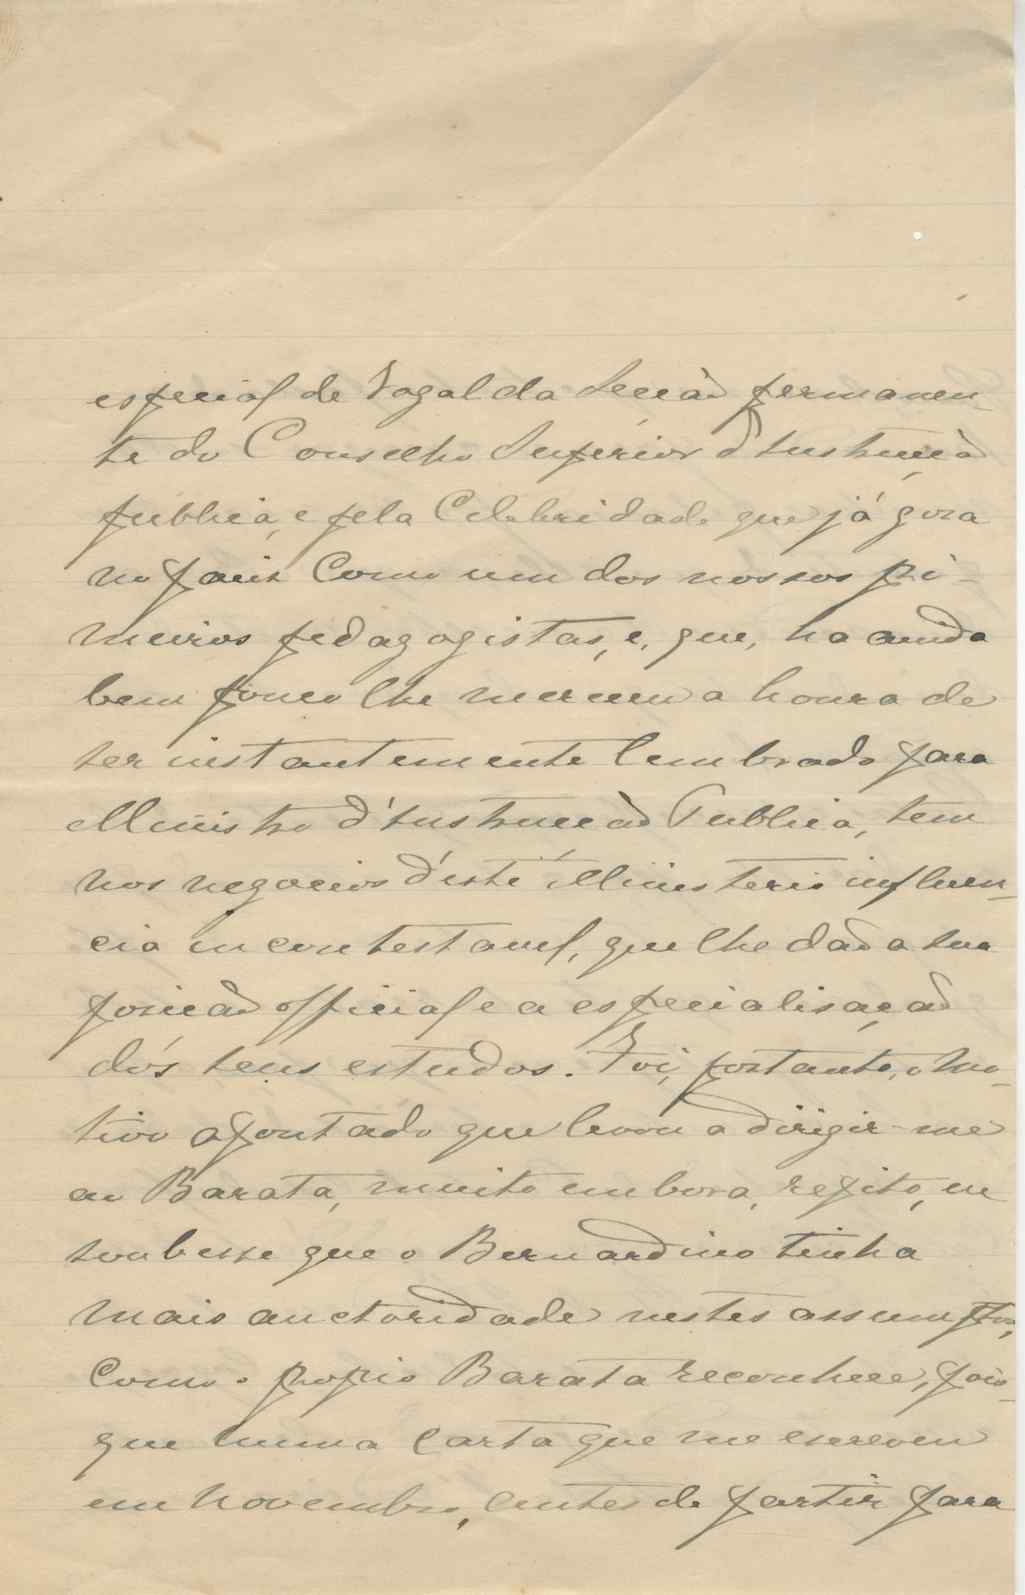 especial de Vogal da Secção permanen-
te do Conselho Superior d'Instrucção
publica, e pela Celebridade que já goza
no paiz como um dos nossos pri-
meiros pedagogistas, e, que, ha ainda
bem pouco lhe mereceu a honra de
ser instantemente lembrado para
Ministro d'Instrucção Publica, tem
nos negocios d'este Ministerio influen-
cia incontestavel, que lhe dão a sua
posição official e a especialisação
dos seus estudos. Foi, portanto, o mo-
tivo apontado que levou a dirigir-me
ao Barata, muito embora, repito, eu
soubesse que o Bernardino tinha
mais auctoridade nestes assumptos,
como o propio Barata reconhece, pois
que numa carta que me escreveu
em novembro, antes de partir para